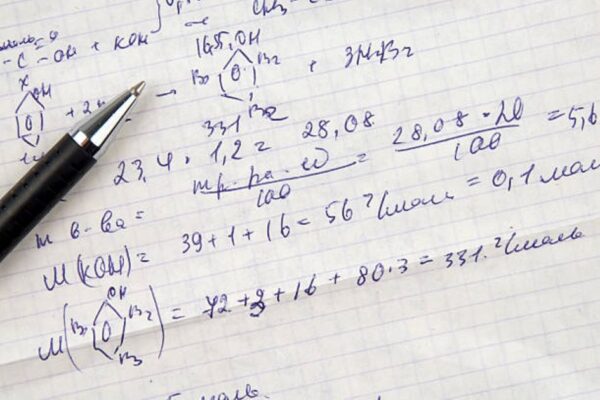 - C - OH + KOH
16,5. OH
Br Br + 3HBr
OH + 2
Br
331
23,4 · 1,2 = 28,08
m в-ва = mр-ра · ω / 100 = 28,08 · 20 / 100 = 5,6
M(KOH) = 39 + 1 + 16 = 56 г/моль = 0,1 мол
M( OH Br Br Br ) = 72 + 3 + 16 + 80·3 = 331 г/моль
моль.